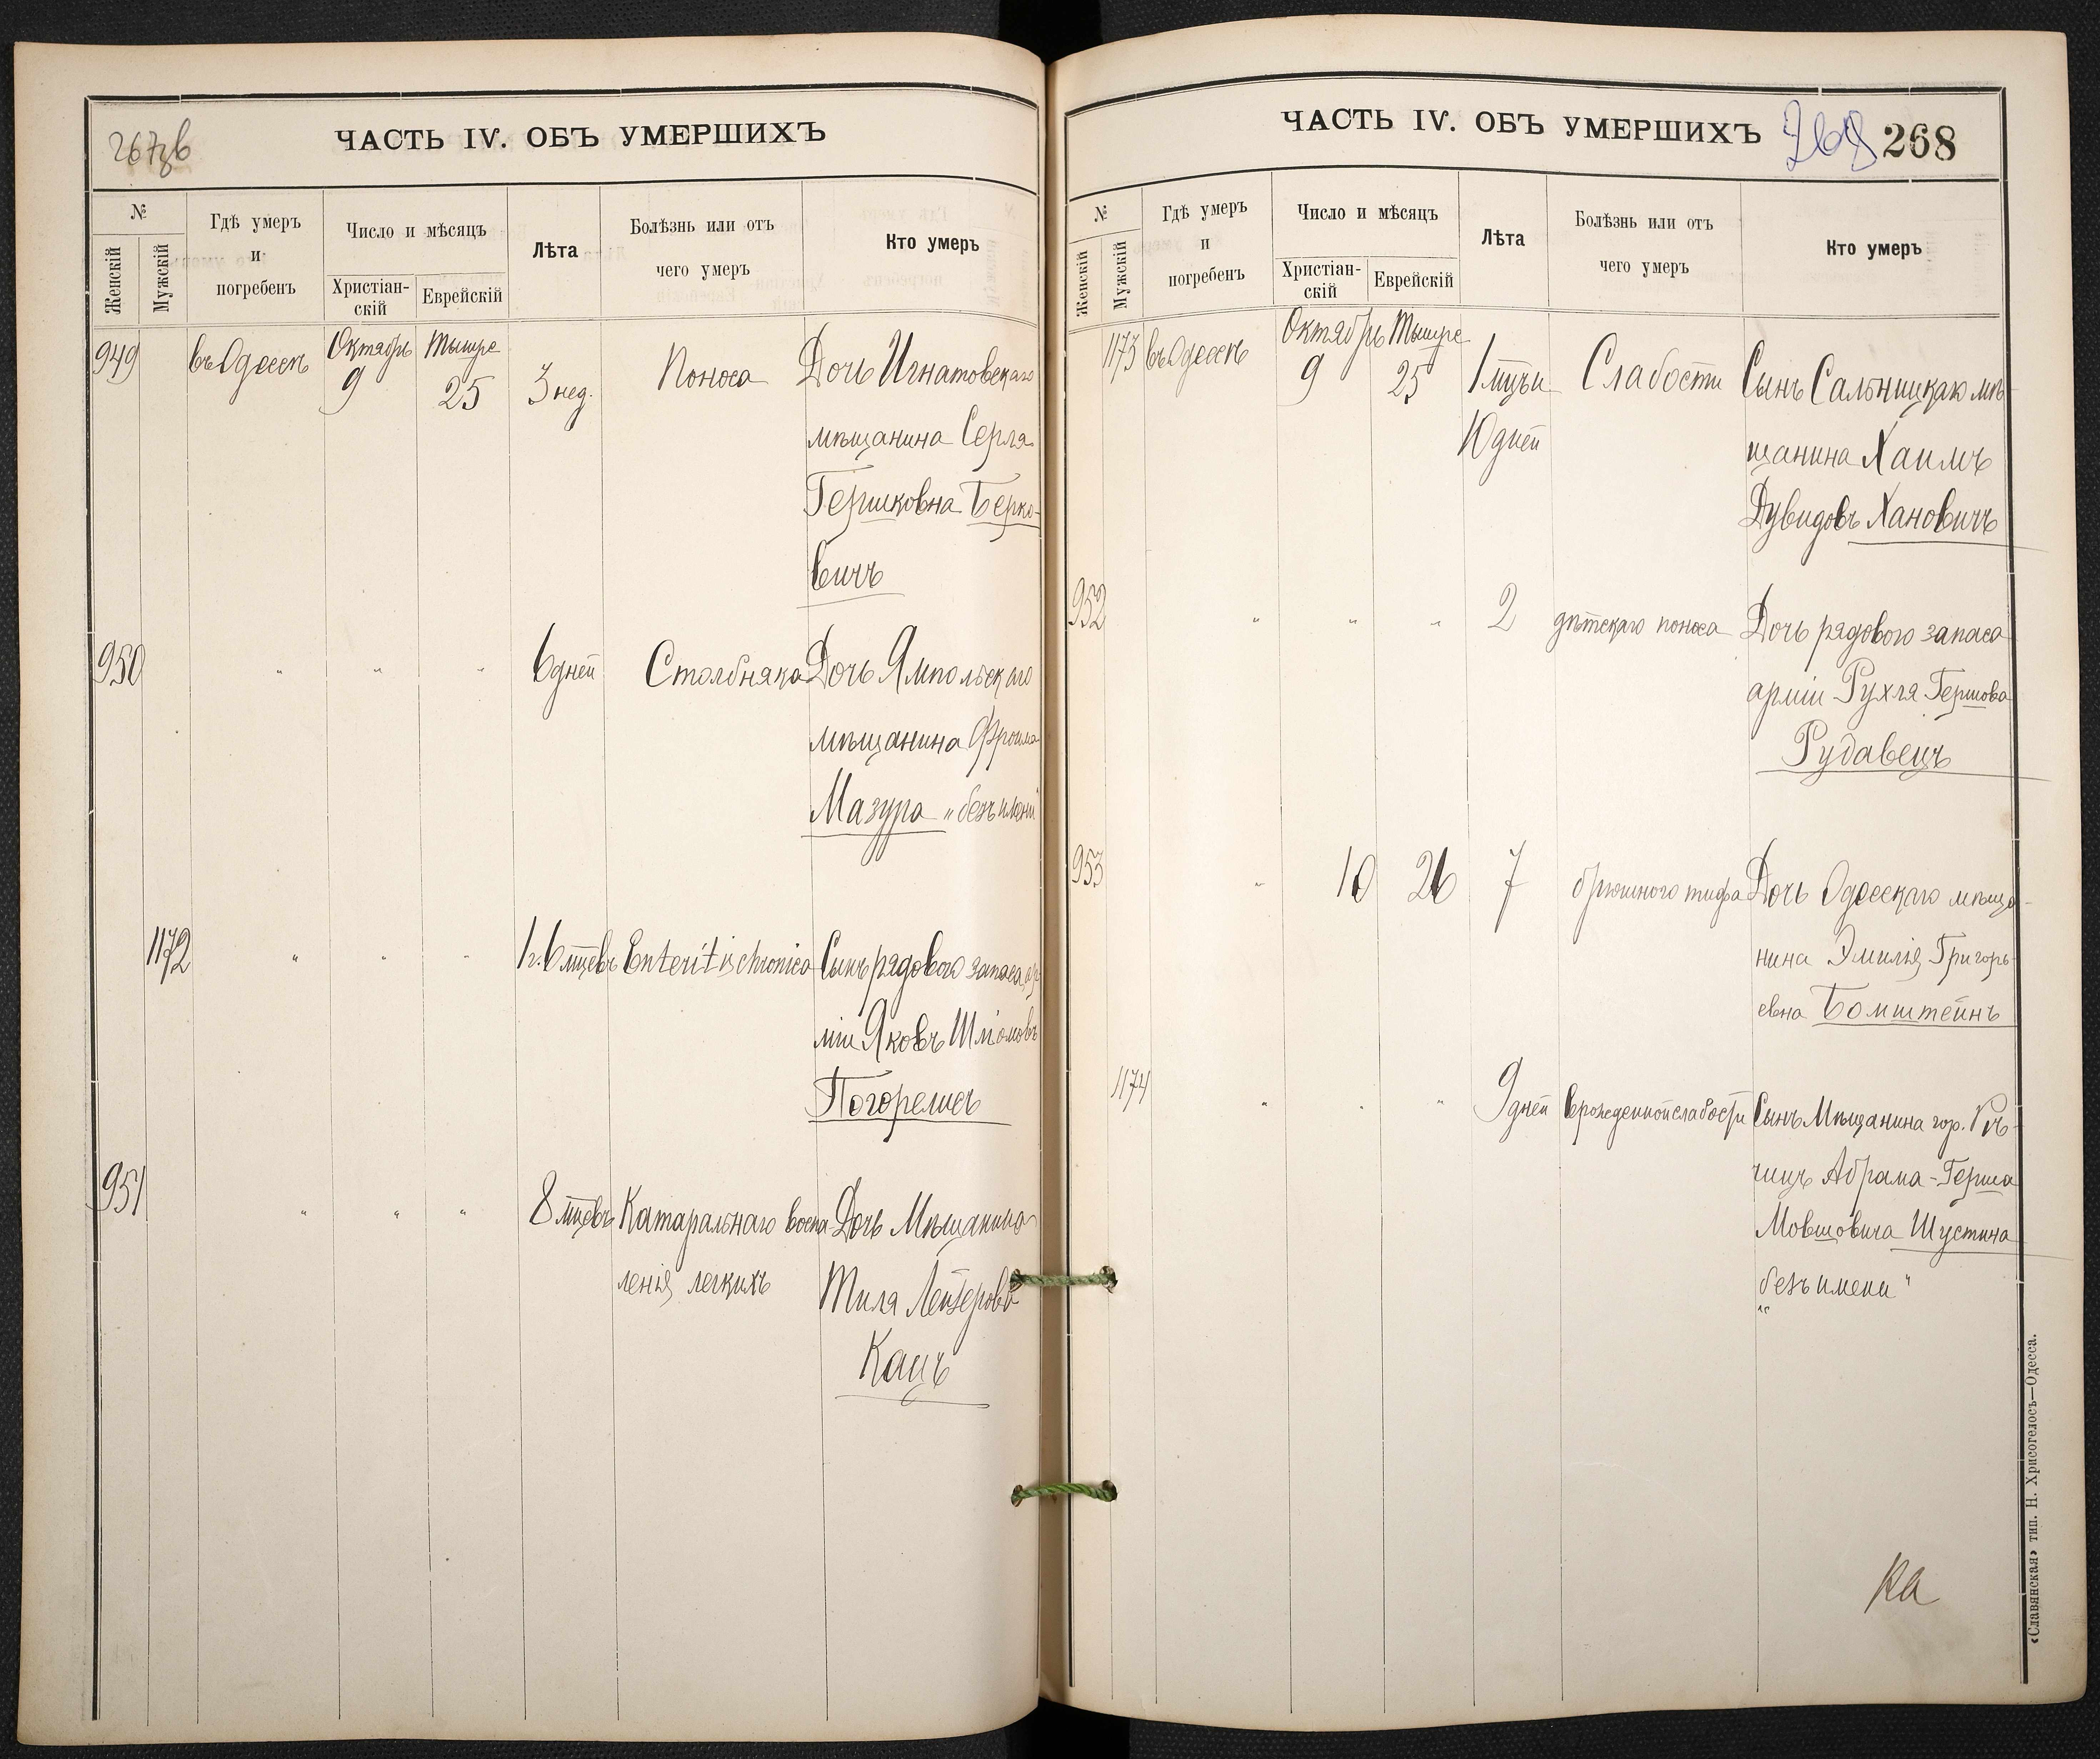 267об
ЧАСТЬ IV. ОБЪ УМЕРШИХЪ
№
Женскій
Мужскій
Гдѣ умеръ
и
погребенъ
Число и мѣсяцъ
Христіан-
скій
Еврейскій
Лѣта
Болѣзнь или отъ
чего умеръ
Кто умеръ
949 въ Одессѣ Октябрь 9 Тышре 25 3 нед. Поноса Дочь Игнатовскаго
мѣщанина Серля
Гершковна Берко-
вичъ
950 " " " 6 дней Столбняка Дочь Ямпольскаго
мѣщанина Фроима
Мазура „безъ имени"
1172 " " " 1 г. 6 мцевъ Enteritis chronica Сынъ рядового запаса ар-
міи Яковъ Шліомовъ
Погорелисъ
951 " " " 8 мцевъ Катаральнаго воспа Дочь Мѣщанина
ленія легкихъ Тиля Лейзерова
Кацъ
ЧАСТЬ IV. ОБЪ УМЕРШИХЪ
268 268
№
Женскій
Мужскій
Гдѣ умеръ
и
погребенъ
Число и мѣсяцъ
Христіан-
скій
Еврейскій
Лѣта
Болѣзнь или отъ
чего умеръ
Кто умеръ
1173 въ Одессѣ Октябрь 9 Тышре 25 1 мцъ и Слабости Сынъ Сальницкаго мѣ-
10 дней щанина Хаимъ
Дувидовъ Хановичъ
952 " " " 2 дѣтскаго поноса Дочь рядового запаса
арміи Рухля Гершова
Рудавецъ
953 " 10 26 7 брюшного тифа Дочь Одесскаго мѣща-
нина Эмилія Григорь-
евна Бомштейнъ
1174 " " " 9 дней врожденной слабости Сынъ Мѣщанина гор. Рѣ-
чицъ Абрама-Герша
Мовшовича Шустина
„безъ имени"
«Славянская» тип. Н. Хрисогелосъ—Одесса.